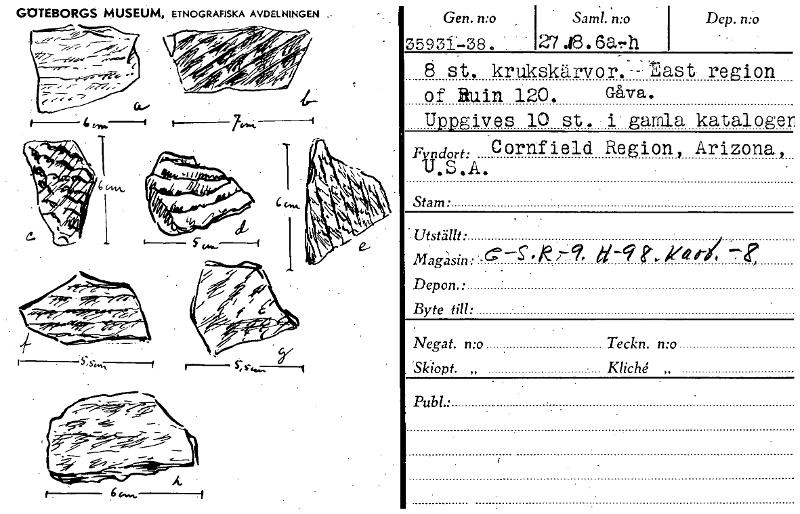 GÖTEBORGS MUSEUM, ETNOGRAFISKA AVDELNINGEN
a
6 cm
b
7 cm
c
6 cm
d
5 cm
e
6 cm
f
5,5 cm
g
5,5 cm
h
6 cm
Gen. n:o Saml. n:o Dep. n:o
35931-38. 27.18.6a-h
8 st. krukskärvor. East region
of Ruin 120. Gåva.
Uppgives 10 st. i gamla katalogen
Fyndort: Cornfield Region, Arizona,
U.S.A.
Stam:
Utställt:
Magasin: G-S.R.-9. H-98. Kart. -8.
Depon.:
Byte till:
Negat. n:o Teckn. n:o
Skiopt. „ Kliché „
Publ.: